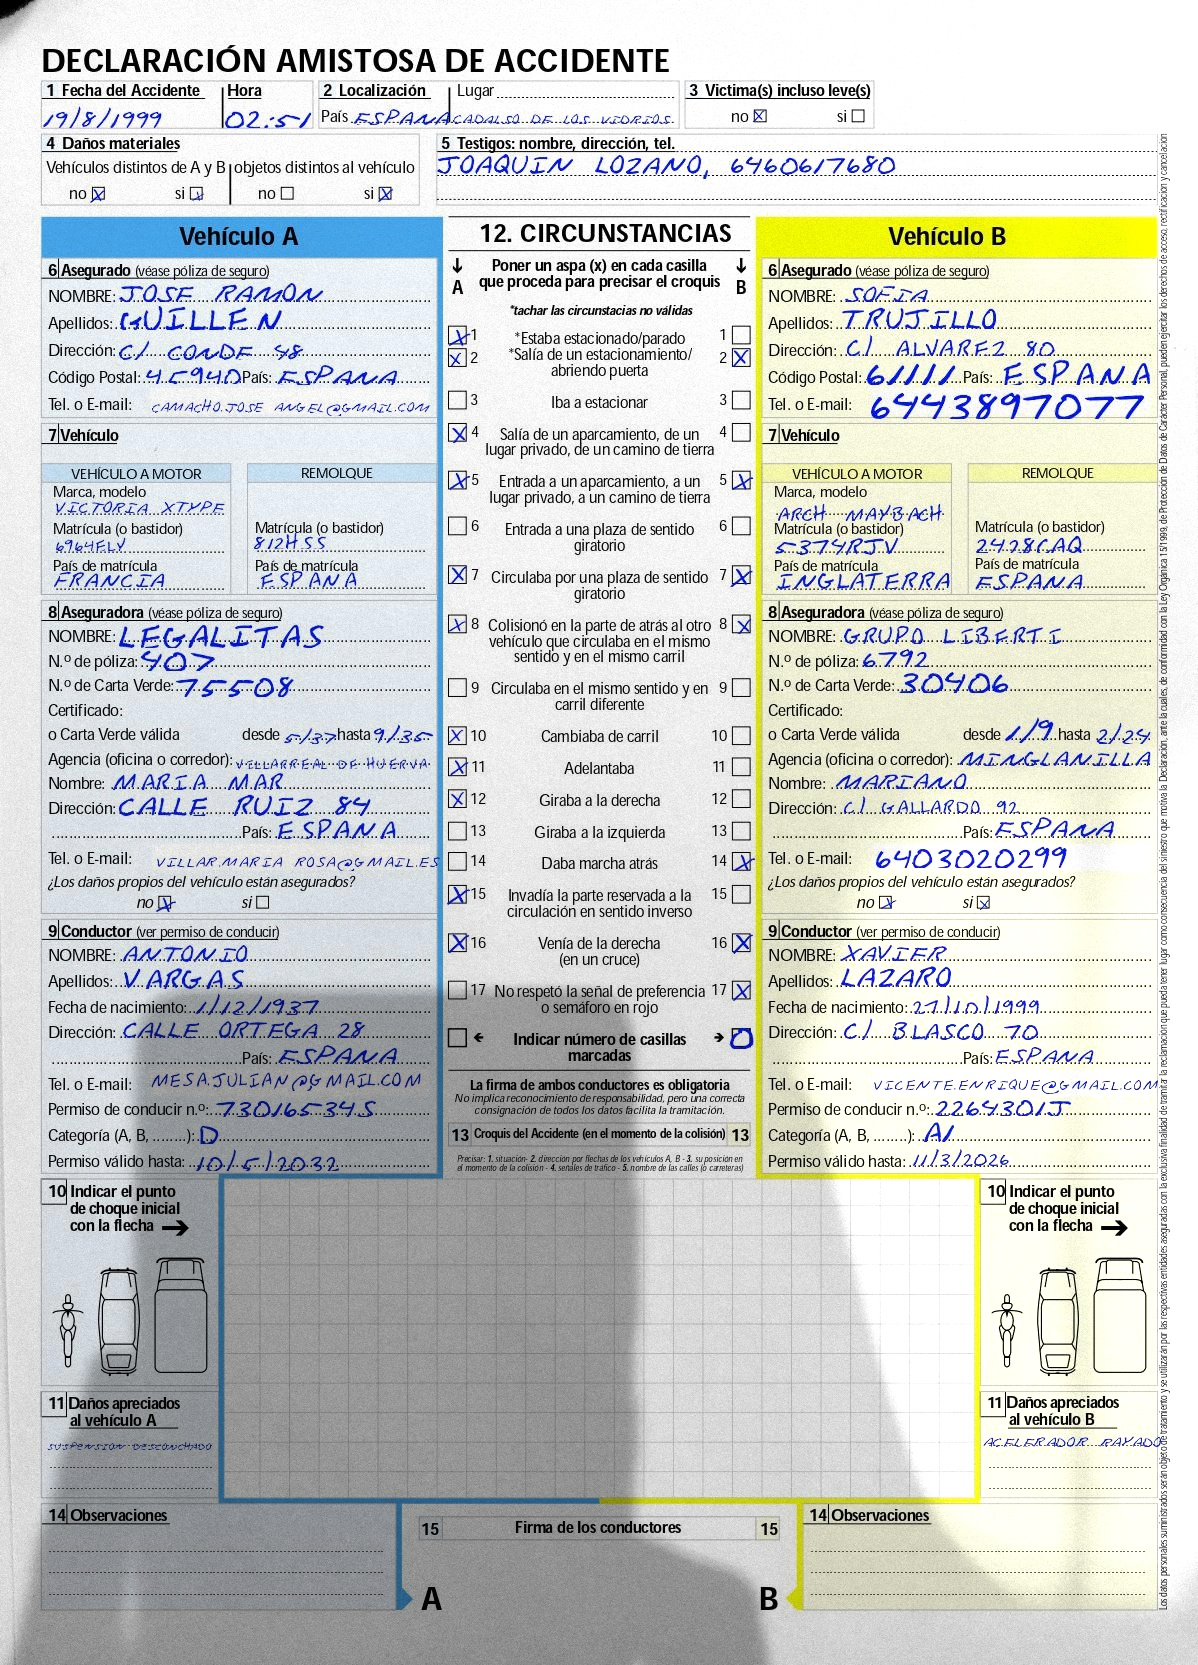 DECLARACIÓN AMISTOSA DE ACCIDENTE
1 Fecha del Accidente Hora 2 Localización Lugar 3 Victima(s) incluso leve(s)
19/8/1999 02:51 País ESPANA CADALSO DE LOS VIDRIOS no X si
4 Daños materiales
Vehículos distintos de A y B objetos distintos al vehículo
no X si X no si X
5 Testigos: nombre, dirección, tel.
JOAQUIN LOZANO, 6460617680
Vehículo A
6 Asegurado (véase póliza de seguro)
NOMBRE: JOSE RAMON
Apellidos: GUILLEN
Dirección: C/ CONDE 48
Código Postal: 45940 País: ESPANA
Tel. o E-mail: CAMACHO.JOSE ANGEL@GMAIL.COM
7 Vehículo
VEHÍCULO A MOTOR REMOLQUE
Marca, modelo
VICTORIA XTYPE
Matrícula (o bastidor) Matrícula (o bastidor)
6964FLV 812HSS
País de matrícula País de matrícula
FRANCIA ESPANA
8 Aseguradora (véase póliza de seguro)
NOMBRE: LEGALITAS
N.º de póliza: 407
N.º de Carta Verde: 75508
Certificado:
o Carta Verde válida desde 5/37 hasta 9/35
Agencia (oficina o corredor): VILLARREAL DE HUERVA
Nombre: MARIA MAR
Dirección: CALLE RUIZ 84
País: ESPANA
Tel. o E-mail: VILLAR.MARIA ROSA@GMAIL.ES
¿Los daños propios del vehículo están asegurados?
no X si
9 Conductor (ver permiso de conducir)
NOMBRE: ANTONIO
Apellidos: VARGAS
Fecha de nacimiento: 1/12/1937
Dirección: CALLE ORTEGA 28
País: ESPANA
Tel. o E-mail: MESA.JULIAN@GMAIL.COM
Permiso de conducir n.º: 73016534S
Categoría (A, B, ........): D
Permiso válido hasta: 10/5/2032
12. CIRCUNSTANCIAS
A Poner un aspa (x) en cada casilla que proceda para precisar el croquis B
*tachar las circunstacias no válidas
X 1 *Estaba estacionado/parado 1
X 2 *Salía de un estacionamiento/ abriendo puerta 2 X
3 Iba a estacionar 3
X 4 Salía de un aparcamiento, de un lugar privado, de un camino de tierra 4
X 5 Entrada a un aparcamiento, a un lugar privado, a un camino de tierra 5 X
6 Entrada a una plaza de sentido giratorio 6
X 7 Circulaba por una plaza de sentido giratorio 7 X
X 8 Colisionó en la parte de atrás al otro vehículo que circulaba en el mismo sentido y en el mismo carril 8 X
9 Circulaba en el mismo sentido y en carril diferente 9
X 10 Cambiaba de carril 10
X 11 Adelantaba 11
X 12 Giraba a la derecha 12
13 Giraba a la izquierda 13
14 Daba marcha atrás 14 X
X 15 Invadía la parte reservada a la circulación en sentido inverso 15
X 16 Venía de la derecha (en un cruce) 16 X
17 No respetó la señal de preferencia o semáforo en rojo 17 X
Indicar número de casillas marcadas 0
La firma de ambos conductores es obligatoria
No implica reconocimiento de responsabilidad, pero una correcta
consignación de todos los datos facilita la tramitación.
13 Croquis del Accidente (en el momento de la colisión) 13
Precisar: 1. situación- 2. dirección por flechas de los vehículos A, B - 3. su posición en
al momento de la colisión - 4. señales de tráfico - 5. nombre de las calles (o carreteras)
Vehículo B
6 Asegurado (véase póliza de seguro)
NOMBRE: SOFIA
Apellidos: TRUJILLO
Dirección: C/ ALVAREZ 80
Código Postal: 61111 País: ESPANA
Tel. o E-mail: 6443897077
7 Vehículo
VEHÍCULO A MOTOR REMOLQUE
Marca, modelo
ARCH MAYBACH
Matrícula (o bastidor) Matrícula (o bastidor)
5374RJV 2428CAQ
País de matrícula País de matrícula
INGLATERRA ESPANA
8 Aseguradora (véase póliza de seguro)
NOMBRE: GRUPO LIBERTI
N.º de póliza: 6792
N.º de Carta Verde: 30406
Certificado:
o Carta Verde válida desde 1/9 hasta 2/24
Agencia (oficina o corredor): MINGLANILLA
Nombre: MARIANO
Dirección: C/ GALLARDO 92
País: ESPANA
Tel. o E-mail: 6403020299
¿Los daños propios del vehículo están asegurados?
no X si X
9 Conductor (ver permiso de conducir)
NOMBRE: XAVIER
Apellidos: LAZARO
Fecha de nacimiento: 27/10/1999
Dirección: C/ BLASCO 70
País: ESPANA
Tel. o E-mail: VICENTE.ENRIQUE@GMAIL.COM
Permiso de conducir n.º: 2264301J
Categoría (A, B, ........): A1
Permiso válido hasta: 11/3/2026
10 Indicar el punto de choque inicial con la flecha
10 Indicar el punto de choque inicial con la flecha
11 Daños apreciados al vehículo A
SUSPENSION DESCONCHADO
11 Daños apreciados al vehículo B
ACELERADOR RAYADO
14 Observaciones
15 Firma de los conductores 15
A B
14 Observaciones
Los datos personales suministrados seran objeto de tratamiento y se utilizaran por las respectivas entidades aseguradas con la exclusiva finalidad de tramitar la reclamación que pueda tener lugar como consecuencia del siniestro que motiva la Declaración, ante la cuales, de conformidad con la Ley Orgánica 15/1999, de Protección de Datos de Carácter Personal, pueden ejercitar los derechos de acceso, rectificación y cancelación